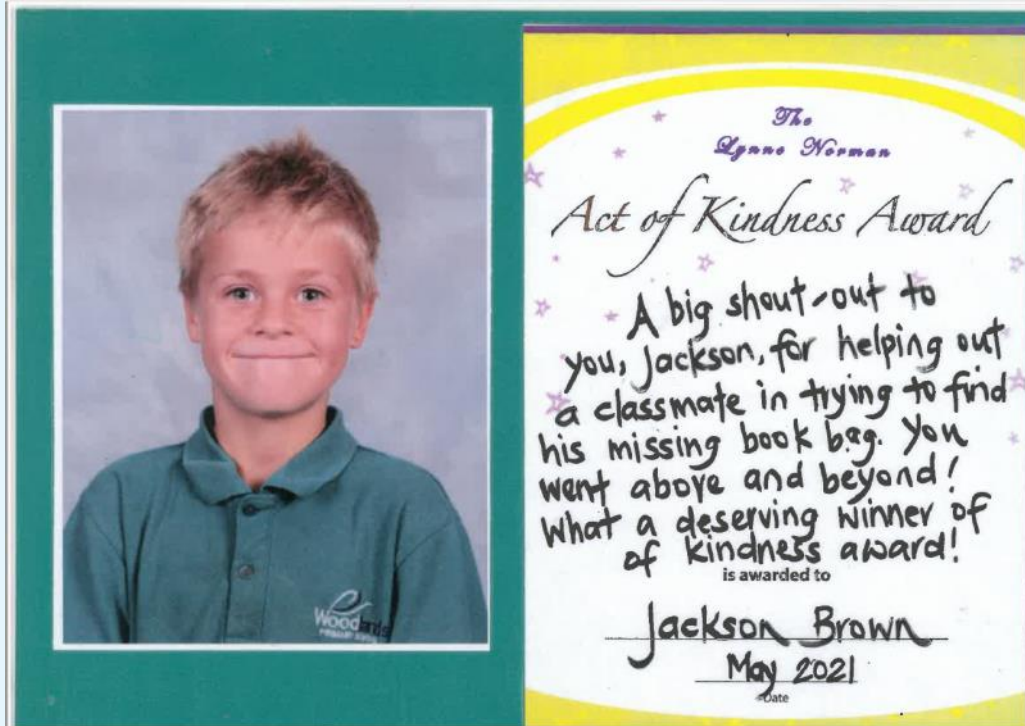 The
Lynne Norman
Act of Kindness Award
A big shout-out to
you, Jackson, for helping out
a classmate in trying to find
his missing book bag. You
went above and beyond!
What a deserving winner of
of kindness award!
is awarded to
Jackson Brown
May 2021
Date